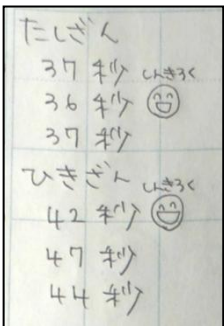 たしざん
37秒 しんきろく
36秒
37秒
ひきざん しんきろく
42秒
47秒
44秒